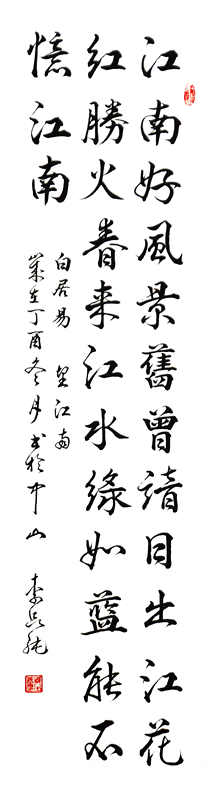 江南好風景舊曾諳日出江花
紅勝火春来江水綠如藍能不
憶江南
白居易 望江南
歲在丁酉冬月書於中山 李